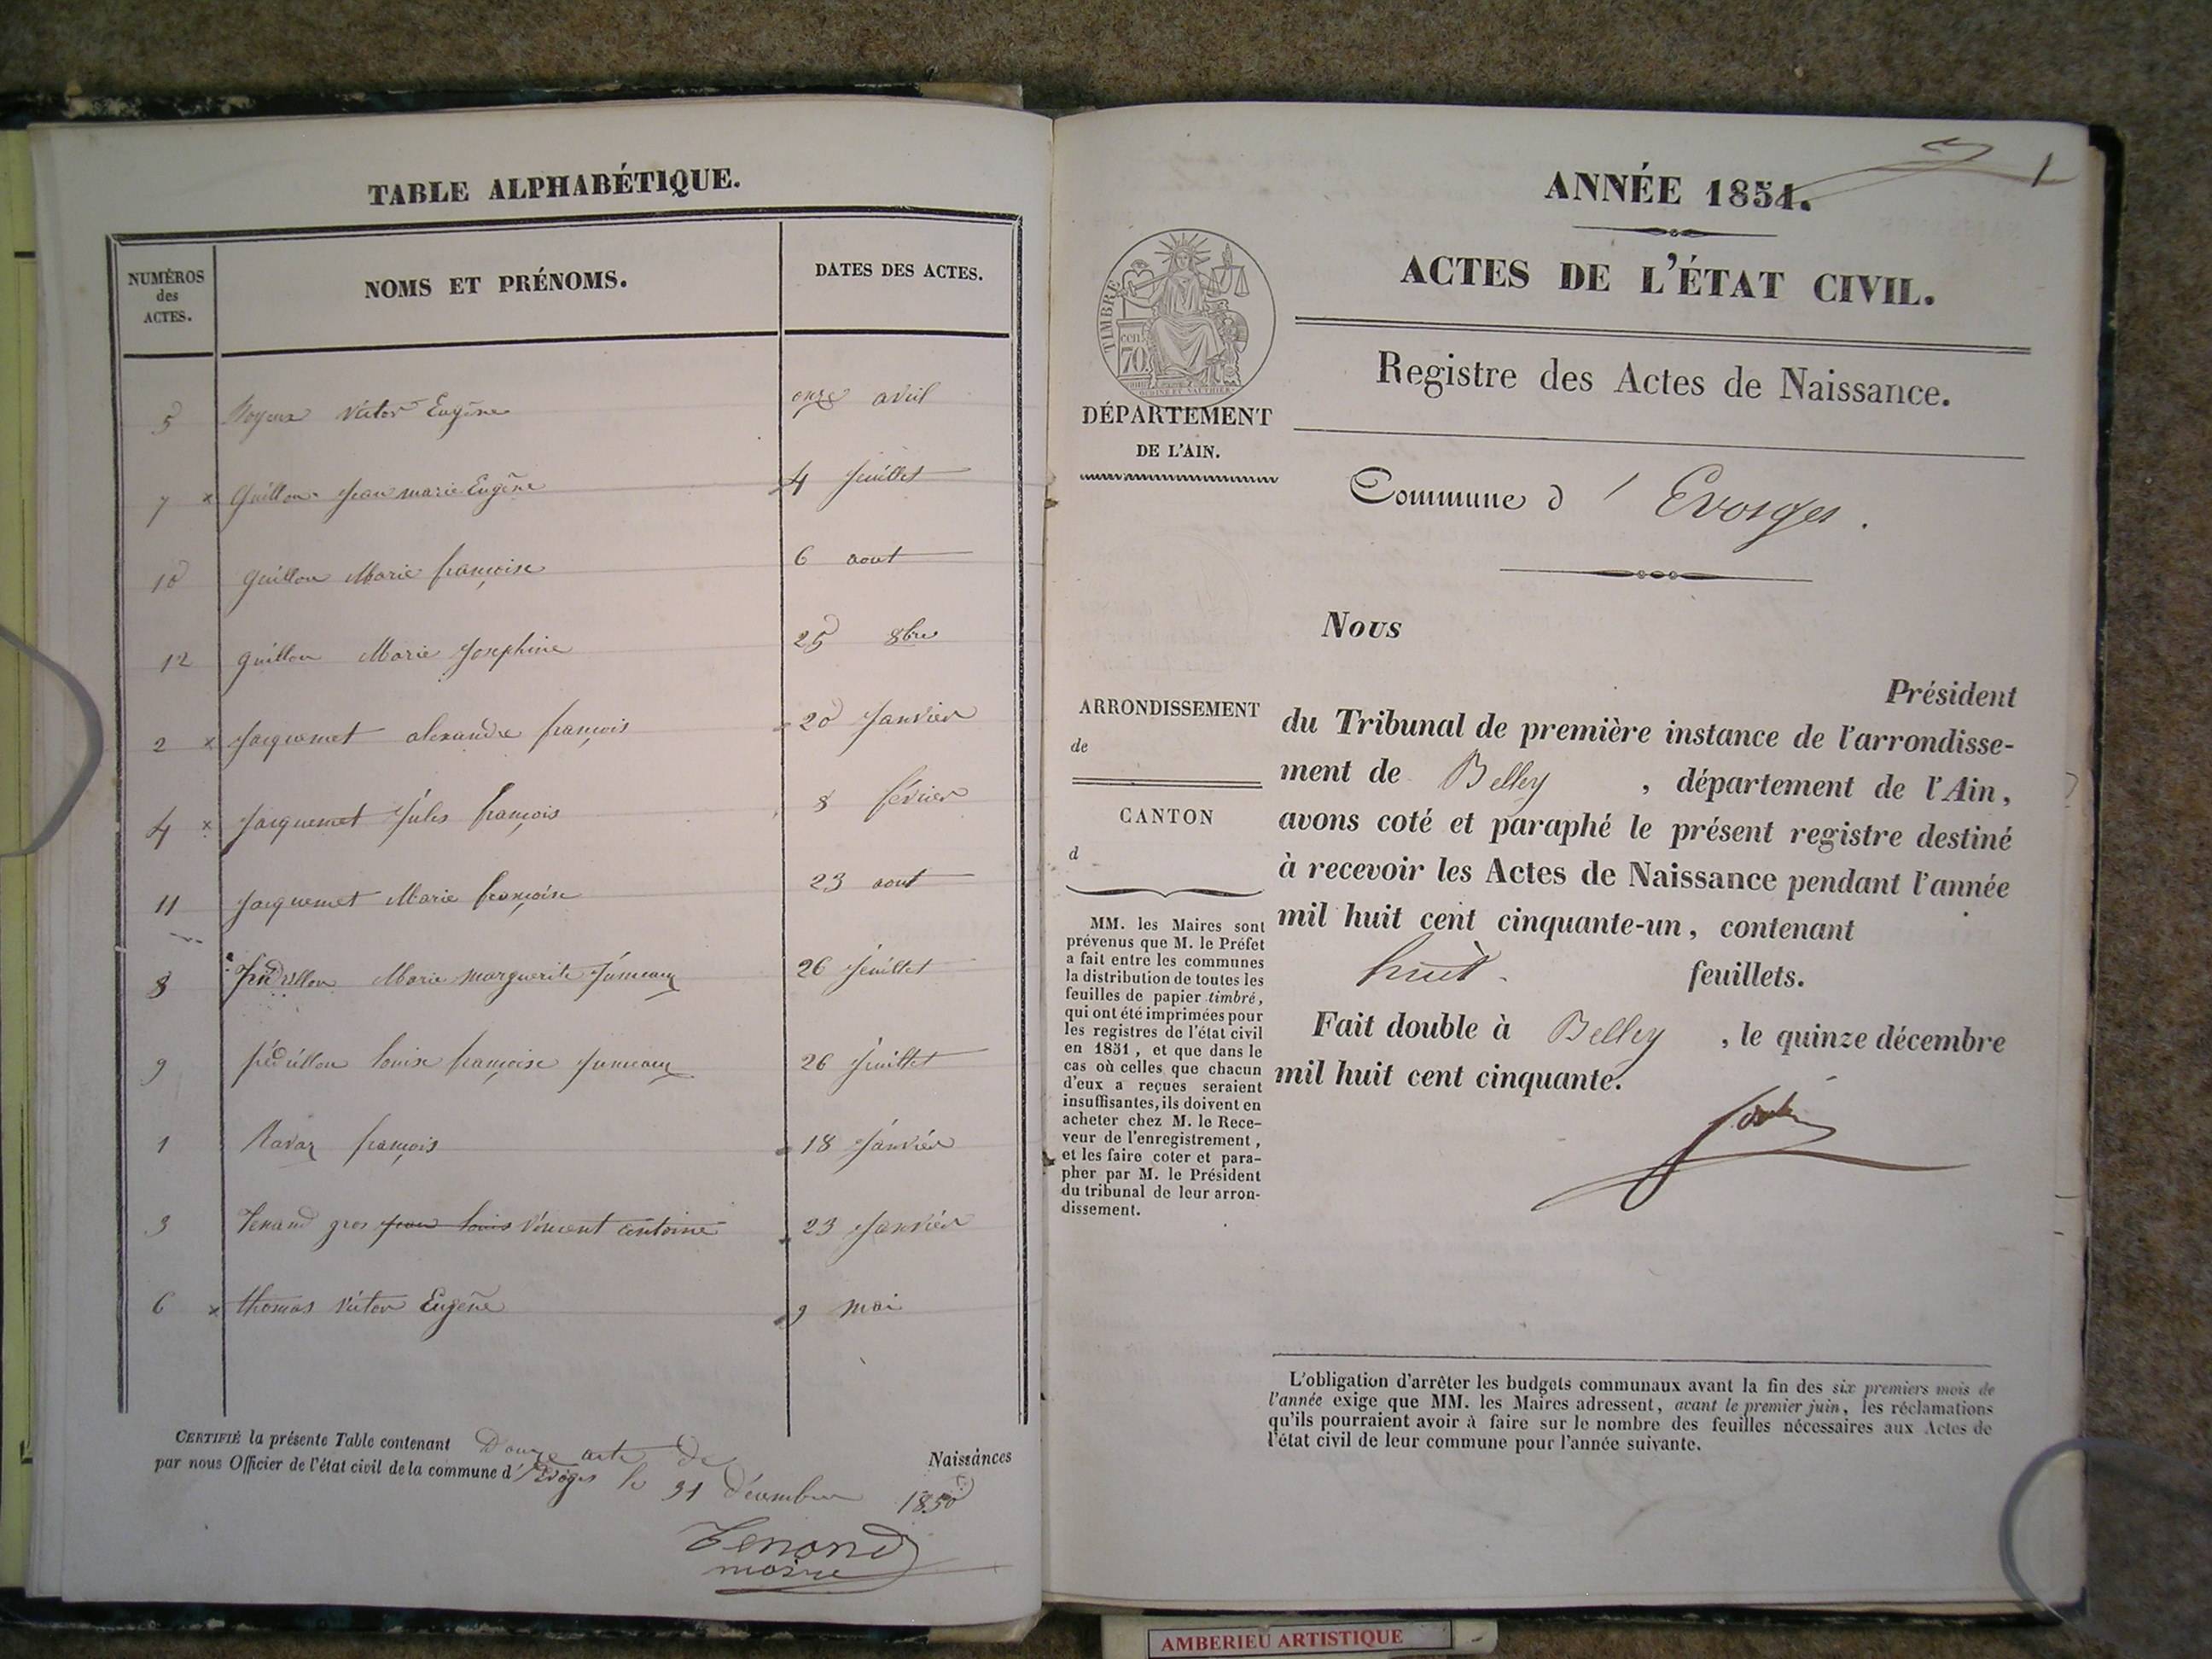 TABLE ALPHABÉTIQUE.
NUMÉROS
des
ACTES.
NOMS ET PRÉNOMS.
DATES DES ACTES.
5 Victor Eugène onze avril
7 x Guillon Jean marie Eugène 4 Juillet
10 guillon Marie françoise 6 aout
12 guillon Marie Josephine 25 8bre
2 x Jacquemet alexandre françois 20 Janvier
4 x Jacquemet Jules françois 8 février
11 Jacquemet Marie françoise 23 aout
8 Marie marguerite Jumeaux 26 Juillet
9 louise françoise Jumeaux 26 Juillet
1 Ravaz françois 18 Janvier
3 Tenand gros Jean louis Vincent antoine 23 Janvier
6 x thomas Victor Eugène 9 mai
CERTIFIÉ la présente Table contenant Douze acte de Naissances
par nous Officier de l'état civil de la commune d'Evoges le 31 Décembre 1850
Tenand
maire
1
ANNÉE 1851.
ACTES DE L'ÉTAT CIVIL.
TIMBRE
cen. 70.
DÉPARTEMENT
DE L'AIN.
Registre des Actes de Naissance.
Commune d' Evosges.
Nous
Président
du Tribunal de première instance de l'arrondisse-
ment de Belley, département de l'Ain,
avons coté et paraphé le présent registre destiné
à recevoir les Actes de Naissance pendant l'année
mil huit cent cinquante-un, contenant
huit feuillets.
Fait double à Belley, le quinze décembre
mil huit cent cinquante.
ARRONDISSEMENT
de
CANTON
d
MM. les Maires sont
prévenus que M. le Préfet
a fait entre les communes
la distribution de toutes les
feuilles de papier timbré,
qui ont été imprimées pour
les registres de l'état civil
en 1851, et que dans le
cas où celles que chacun
d'eux a reçues seraient
insuffisantes, ils doivent en
acheter chez M. le Rece-
veur de l'enregistrement,
et les faire coter et para-
pher par M. le Président
du tribunal de leur arron-
dissement.
L'obligation d'arrêter les budgets communaux avant la fin des six premiers mois de
l'année exige que MM. les Maires adressent, avant le premier juin, les réclamations
qu'ils pourraient avoir à faire sur le nombre des feuilles nécessaires aux Actes de
l'état civil de leur commune pour l'année suivante.
AMBERIEU ARTISTIQUE